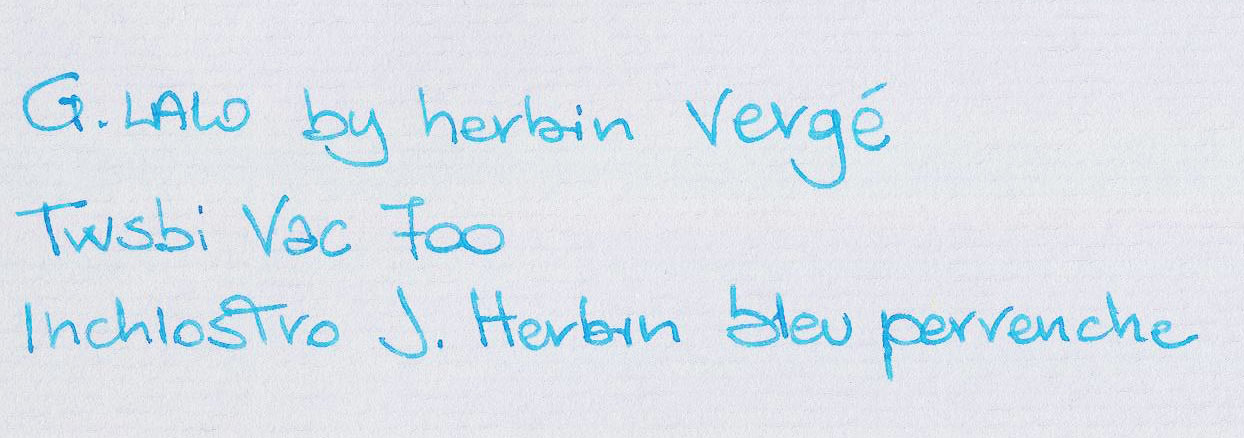 G. LALO by herbin Vergé
Twsbi Vac 700
Inchiostro J. Herbin bleu pervenche